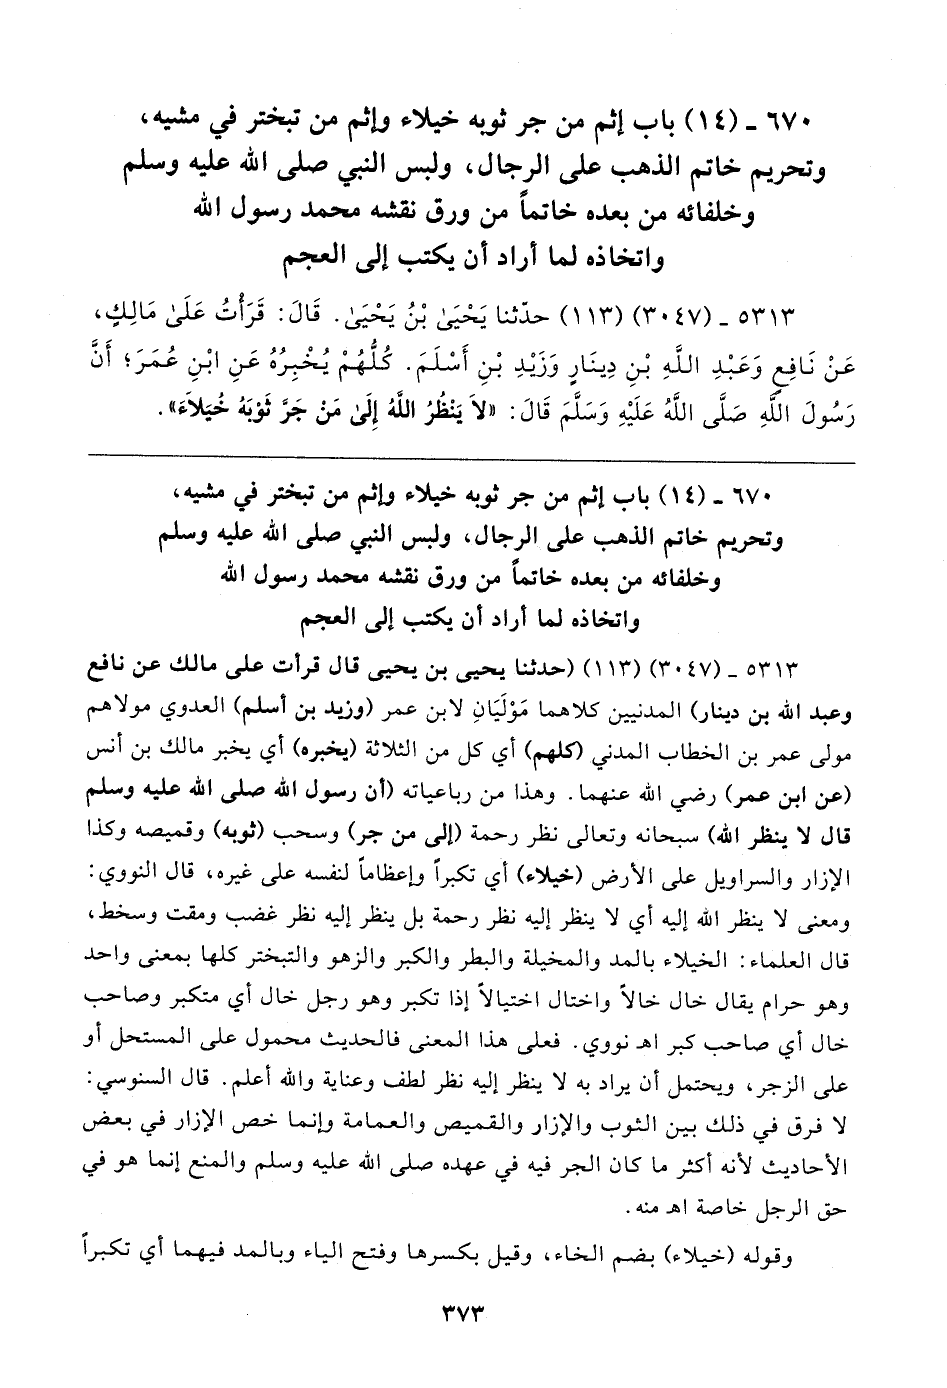 ٦٧٠ ـ (١٤) باب إثم من جر ثوبه خيلاء وإثم من تبختر في مشيه،
وتحريم خاتم الذهب على الرجال، ولبس النبي صلى الله عليه وسلم
وخلفائه من بعده خاتماً من ورق نقشه محمد رسول الله
واتخاذه لما أراد أن يكتب إلى العجم
٥٣١٣ ـ (٣٠٤٧) (١١٣) حدّثنا يَحْيَىٰ بْنُ يَحْيَىٰ. قَالَ: قَرَأْتُ عَلَىٰ مَالِكٍ،
عَنْ نَافِعٍ وَعَبْدِ اللَّهِ بْنِ دِينَارٍ وَزَيْدِ بْنِ أَسْلَمَ. كُلُّهُمْ يُخْبِرُهُ عَنِ ابْنِ عُمَرَ؛ أَنَّ
رَسُولَ اللَّهِ صَلَّى اللَّهُ عَلَيْهِ وَسَلَّمَ قَالَ: «لاَ يَنْظُرُ اللَّهُ إِلَىٰ مَنْ جَرَّ ثَوْبَهُ خُيَلاَءَ».
٦٧٠ ـ (١٤) باب إثم من جر ثوبه خيلاء وإثم من تبختر في مشيه،
وتحريم خاتم الذهب على الرجال، ولبس النبي صلى الله عليه وسلم
وخلفائه من بعده خاتماً من ورق نقشه محمد رسول الله
واتخاذه لما أراد أن يكتب إلى العجم
٥٣١٣ ـ (٣٠٤٧) (١١٣) (حدثنا يحيى بن يحيى قال قرأت على مالك عن نافع
وعبد الله بن دينار) المدنيين كلاهما مَوْلَيَانِ لابن عمر (وزيد بن أسلم) العدوي مولاهم
مولى عمر بن الخطاب المدني (كلهم) أي كل من الثلاثة (يخبره) أي يخبر مالك بن أنس
(عن ابن عمر) رضي الله عنهما. وهذا من رباعياته (أن رسول الله صلى الله عليه وسلم
قال لا ينظر الله) سبحانه وتعالى نظر رحمة (إلى من جر) وسحب (ثوبه) وقميصه وكذا
الإزار والسراويل على الأرض (خيلاء) أي تكبراً وإعظاماً لنفسه على غيره، قال النووي:
ومعنى لا ينظر الله إليه أي لا ينظر إليه نظر رحمة بل ينظر إليه نظر غضب ومقت وسخط،
قال العلماء: الخيلاء بالمد والمخيلة والبطر والكبر والزهو والتبختر كلها بمعنى واحد
وهو حرام يقال خال خالاً واختال اختيالاً إذا تكبر وهو رجل خال أي متكبر وصاحب
خال أي صاحب كبر اهـ نووي. فعلى هذا المعنى فالحديث محمول على المستحل أو
على الزجر، ويحتمل أن يراد به لا ينظر إليه نظر لطف وعناية والله أعلم. قال السنوسي:
لا فرق في ذلك بين الثوب والإزار والقميص والعمامة وإنما خص الإزار في بعض
الأحاديث لأنه أكثر ما كان الجر فيه في عهده صلى الله عليه وسلم والمنع إنما هو في
حق الرجل خاصة اهـ منه.
وقوله (خيلاء) بضم الخاء، وقيل بكسرها وفتح الياء وبالمد فيهما أي تكبراً
٣٧٣